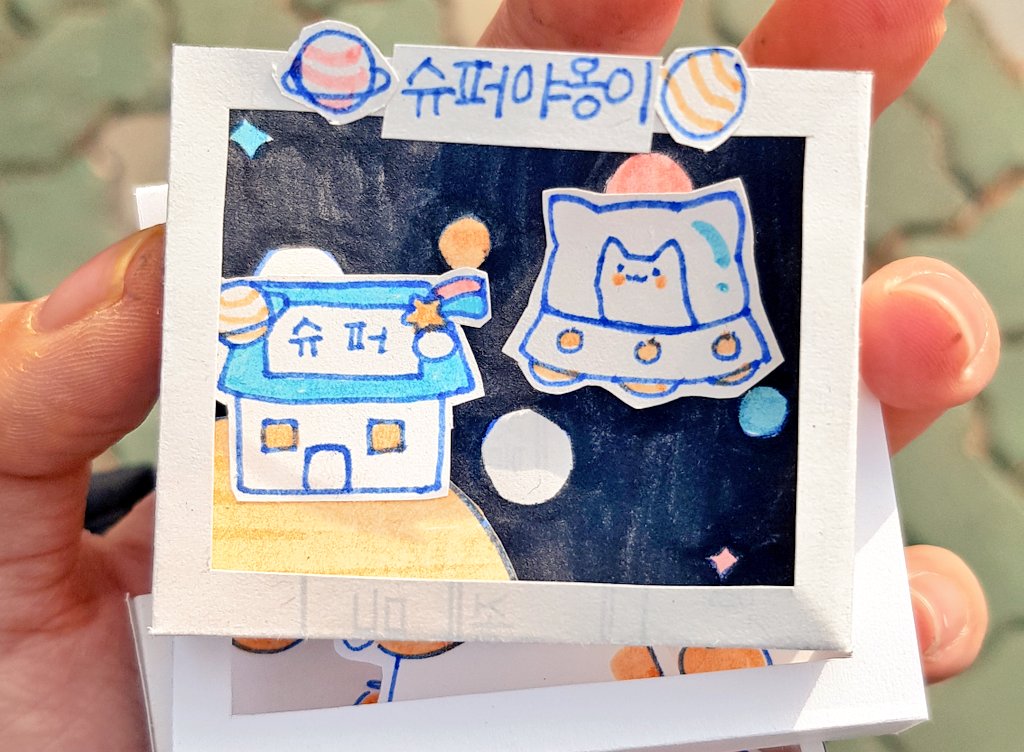 슈퍼야옹이
슈퍼